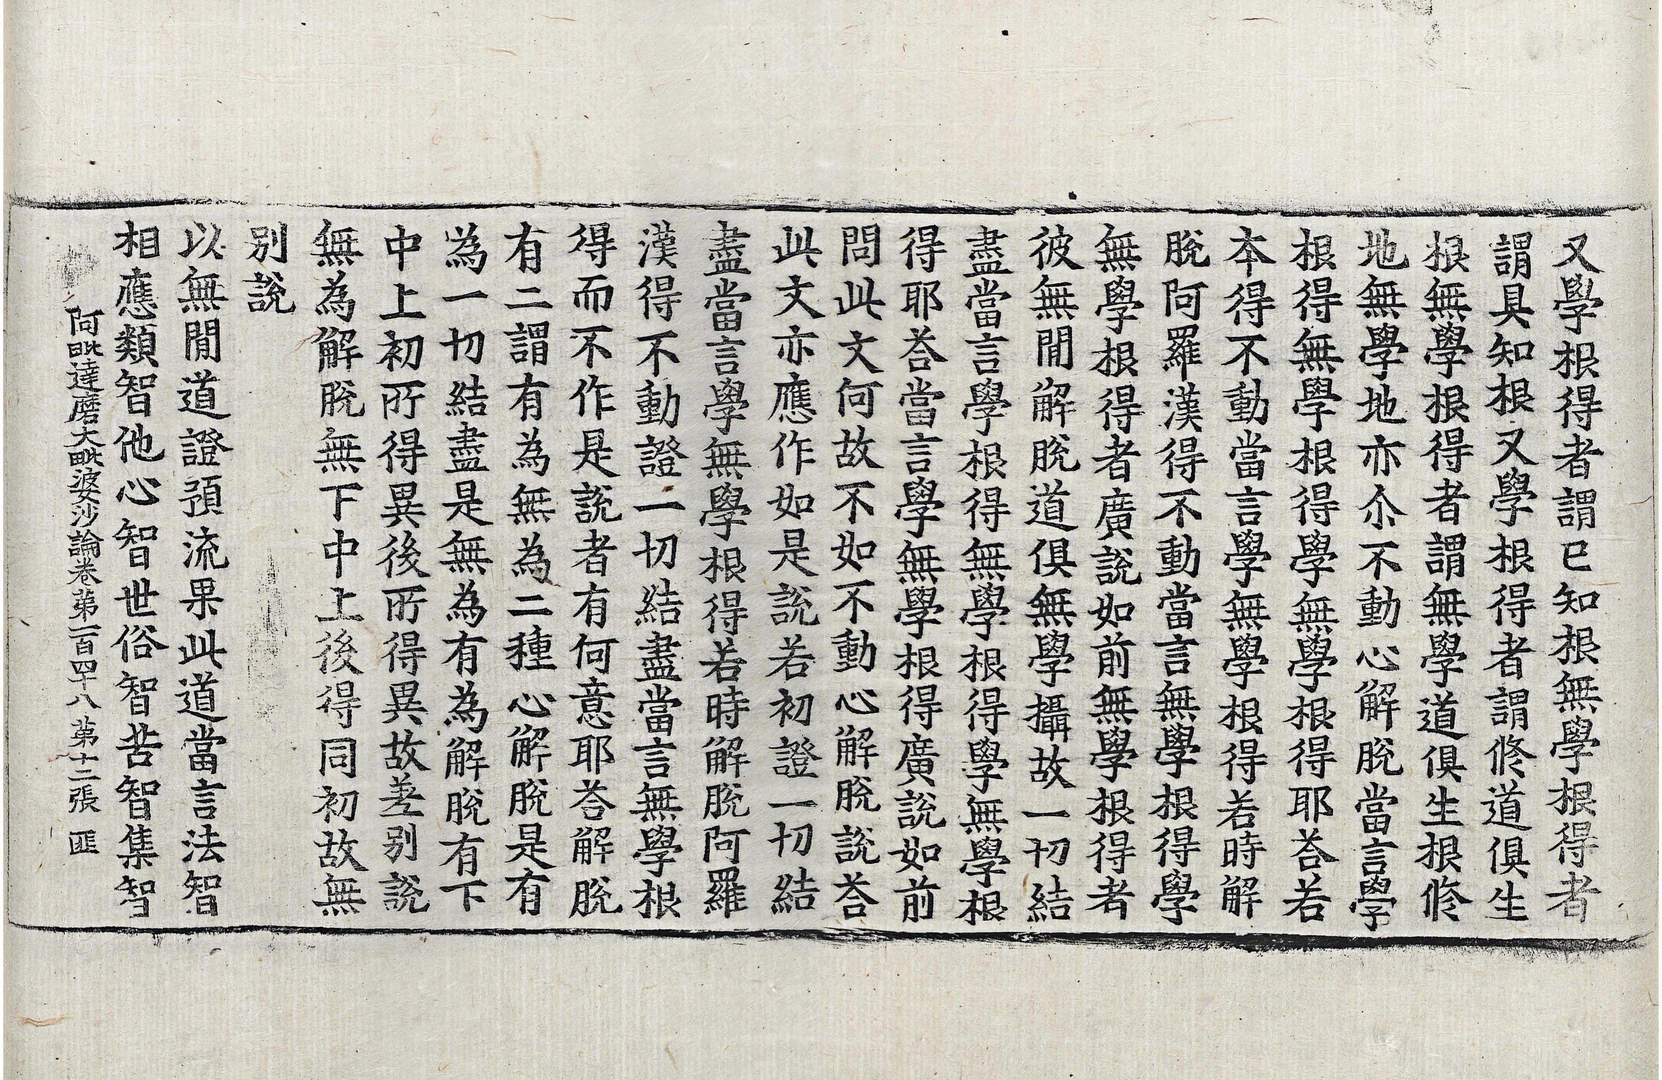 又學根得者謂已知根無學根得者
謂具知根又學根得者謂修道俱生
根無學根得者謂無學道俱生根修
地無學地亦尒不動心解脫當言學
根得無學根得學無學根得耶荅若
本得不動當言學無學根得若時解
脫阿羅漢得不動當言無學根得學
無學根得者廣說如前無學根得者
彼無間解脫道俱無學攝故一切結
盡當言學根得無學根得學無學根
得耶荅當言學無學根得廣說如前
問此文何故不如不動心解脫說荅
此文亦應作如是說若初證一切結
盡當言學無學根得若時解脫阿羅
漢得不動證一切結盡當言無學根
得而不作是說者有何意耶荅解脫
有二謂有為無為二種心解脫是有
為一切結盡是無為有為解脫有下
中上初所得異後所得異故差別說
無為解脫無下中上後得同初故無
別說
以無間道證預流果此道當言法智
相應類智他心智世俗智苦智集智
阿毗達磨大毗婆沙論卷第一百四十八 第十二張 匪